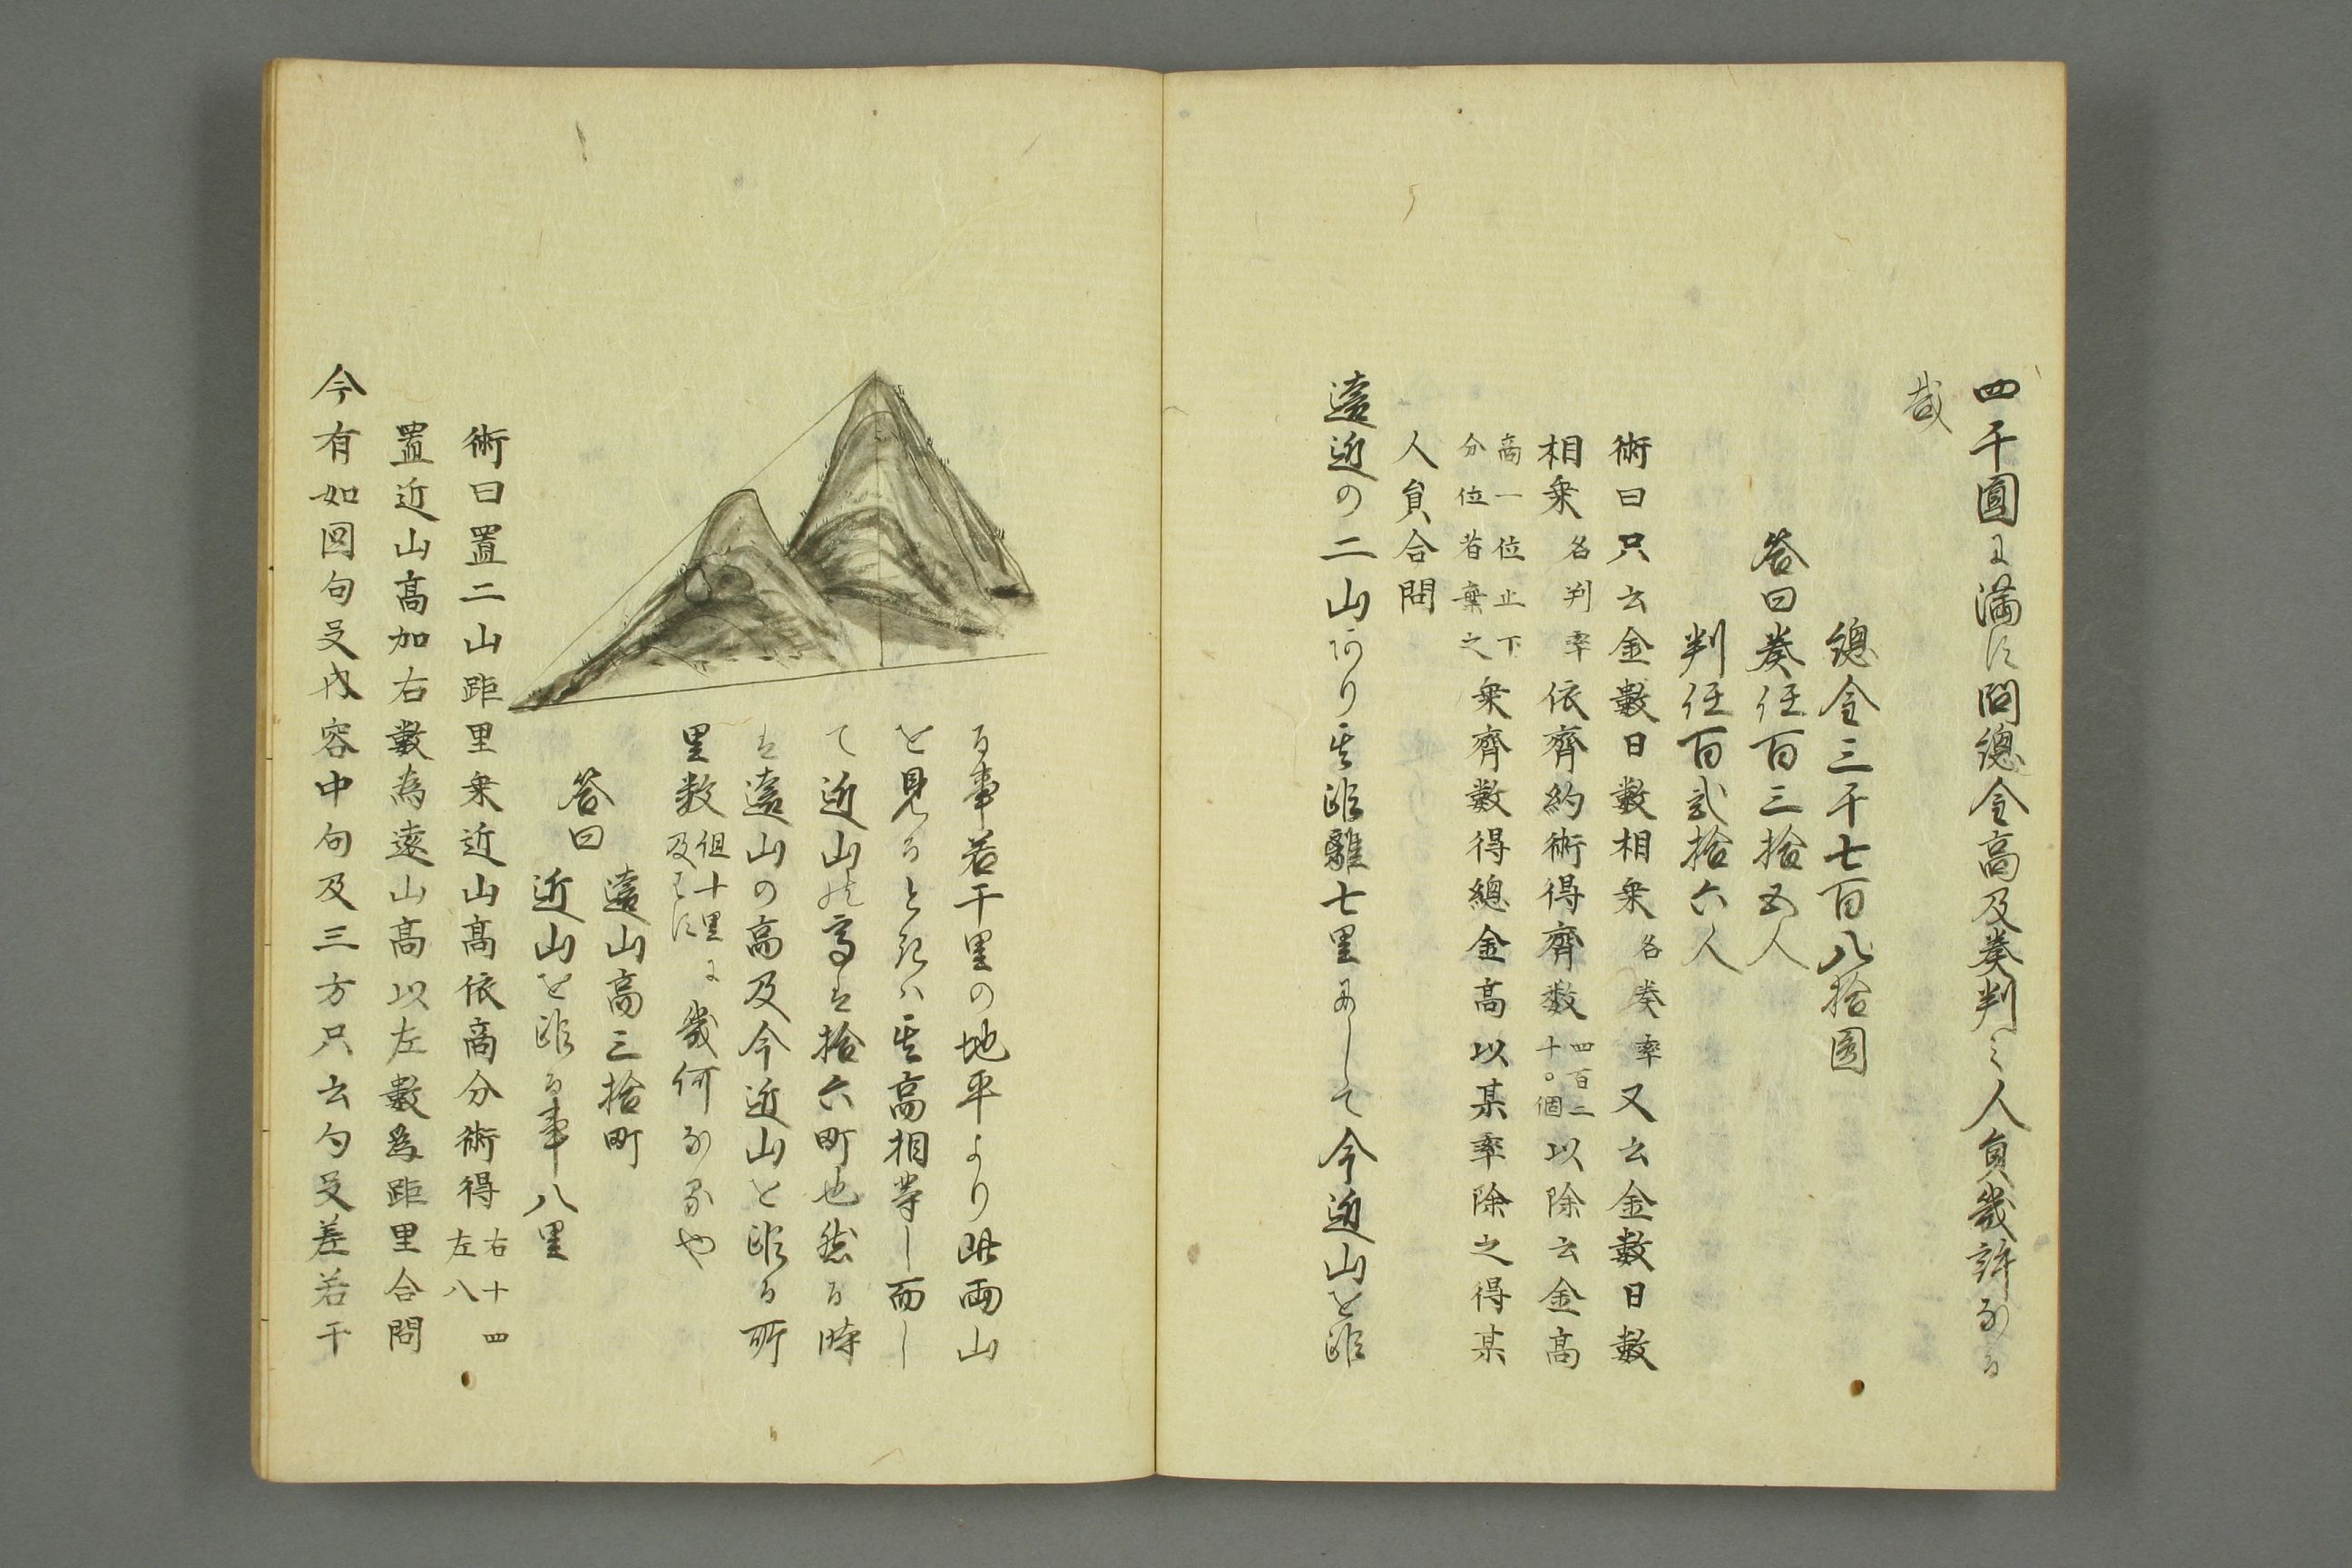 四千圓に満に問總金高及奏判之人員幾許なる
哉
總金三千七百八拾圓
答曰奏任百三拾五人
判任百弐拾六人
術曰只云金數日數相乗各奏率又云金数日數
相乗各判率依齊約術得齊数四百二十〇個以除云金髙
商一位止下分位者棄之乗齊數得總金高以某率除之得某
人員合問
遠近の二山あり其距離七里にして今近山を距
る事若干里の地平より此両山
を見るときハ其高相等し而し
て近山の高さ拾六町也然る時
は遠山の高及今近山を距る所
里数但十里に及はす幾何なるや
答曰
遠山高三拾町
近山を距る事八里
術曰置二山距里乗近山髙依商分術得右十四左八
置近山髙加右數為遠山髙以左數為距里合問
今有如図句殳内容中句及三方只云勾殳差若干